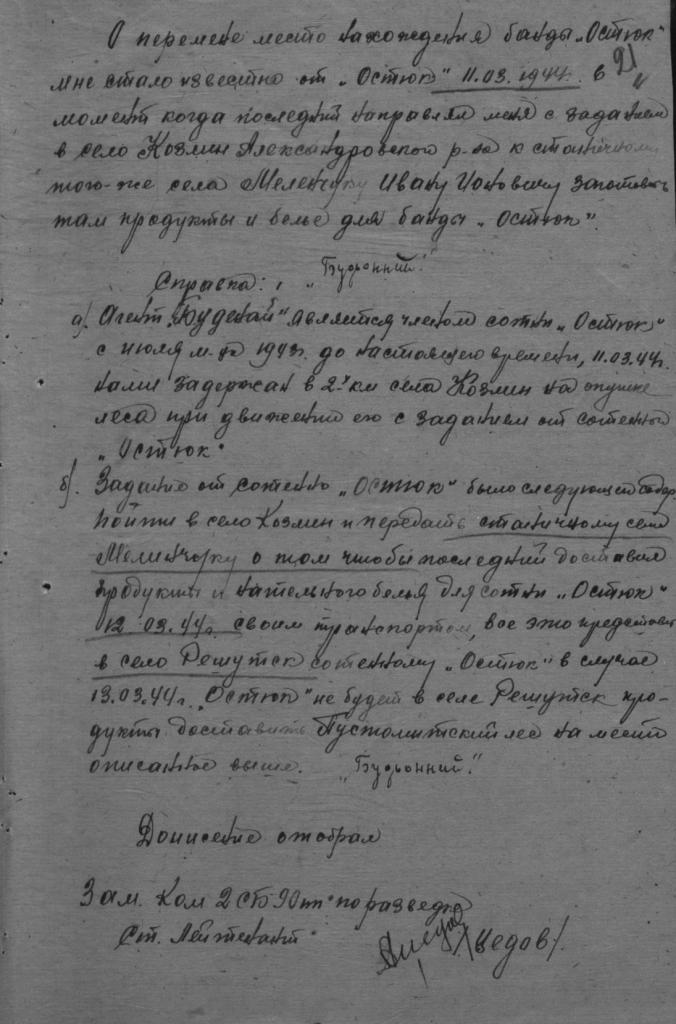 О перемене место нахождения банды „Остюк"
91
мне стало известно от „Остюк" 11.03.1944г. в
момент когда последний направлял меня с заданием
в село Козлин Александровского р-на к станичному
того-же села Мелензуку Ивану Ионовичу заготовить
там продукты и белье для банды „Остюк".
Справка: „Будьонний".
а). Агент „Буденай" является членом сотни „Остюк"
с июля м-ца 1943г. до настоящего времени, 11.03.44г.
нами задержан в 2х км села Козлин на опушке
леса при движении его с заданием от сотенного
„Остюк"
б). Задание от сотенно „Остюк" было следующей содер.
Пойти в село Козлин и передать станичному села
о том чтобы последний доставил
продукты и нательного белья для сотни „Остюк"
12.03.44г. своим транспортом, все это представить
в село Решутск сотенному „Остюк" в случае
13.03.44г. „Остюк" не будет в селе Решутск про-
дукты доставить Пустомитский лес на место
описанное выше. „Будьонний".
Донисение отобрал
Зам. Ком 2 СБ по разведке
Ст. Лейтенант